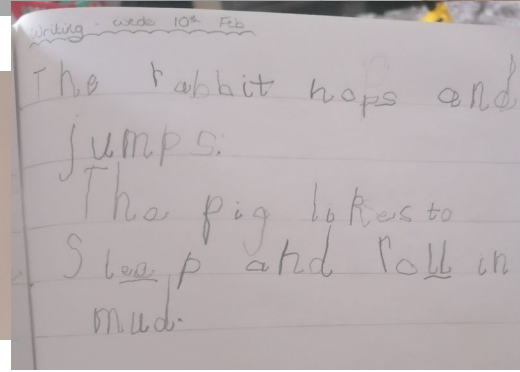 Writing - weds 10th Feb
The rabbit hops and
jumps.
The pig likes to
Sleap and roll in
mud.